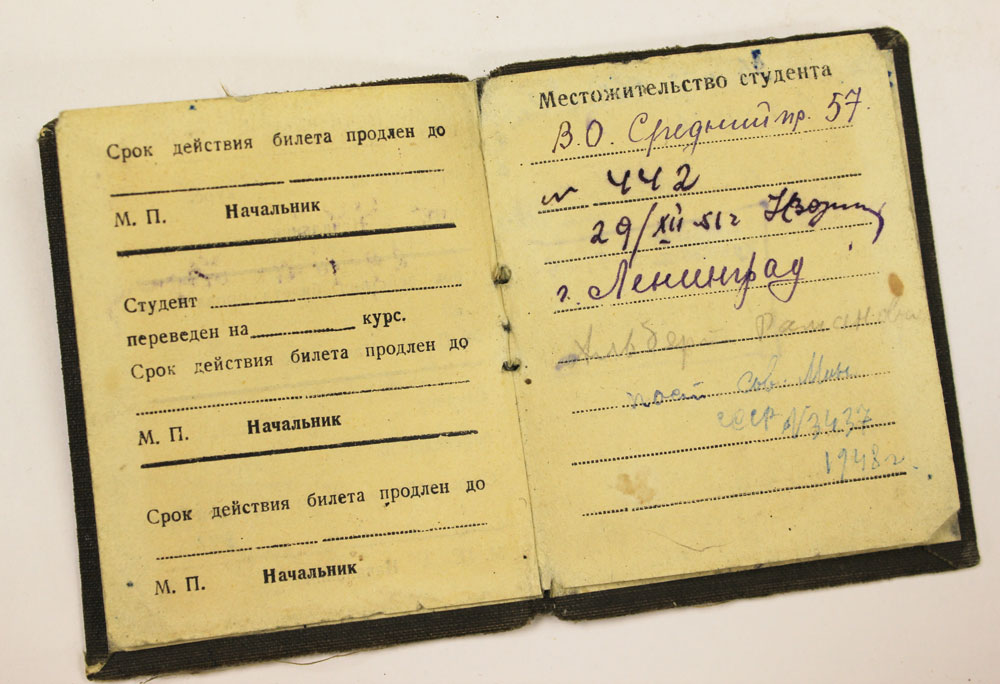 Срок действия билета продлен до
М. П. Начальник
Студент
переведен на курс.
Срок действия билета продлен до
М. П. Начальник
Срок действия билета продлен до
М. П. Начальник
Местожительство студента
В.О. Средний пр. 57.
№ 442
29/XII 51г
г. Ленинград
Альберт
пост Сов. Мин
СССР №3437
1948г.